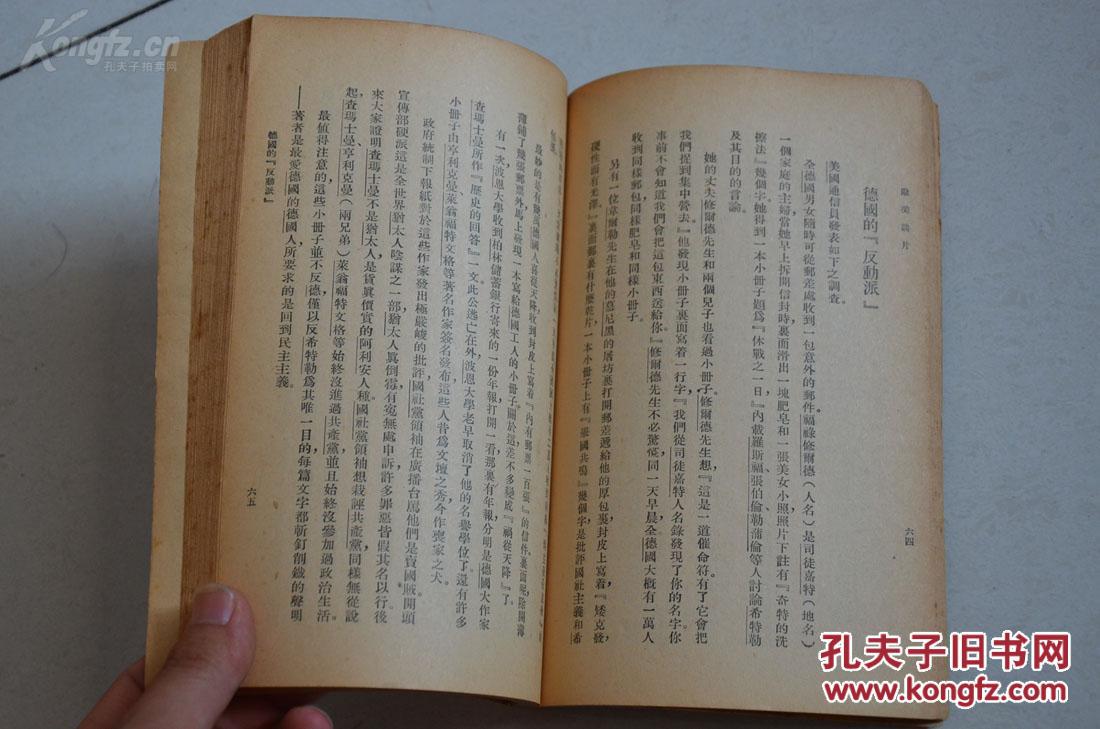 歐美談片
六四
德國的『反動派』
美國通信員發表如下之調查。
全德國男女隨時可從郵差處收到一包意外的郵件。福祿修爾德（人名）是司徒嘉特（地名）
一個家庭的主婦當她早上拆開信封時裏面滑出一塊肥皂和一張美女小照照片下註有『奇特的洗
擦法』幾個字。她得到一本小冊子題爲『休戰之一日』內載羅斯福、張伯倫、勒蒲倫等人討論希特勒
及其目的的言論。
她的丈夫修爾德先生和兩個兒子也看過小冊子。修爾德先生想『這是一道催命符有了它會把
我們捉到集中營去。』他發現小冊子裏面寫着一行字『我們從司徒嘉特人名錄發現了你的名字你
事前不會知道我們會把這包東西送給你。』修爾德先生不必驚慌同一天早晨全德國大概有一萬人
收到同樣郵包同樣肥皂和同樣小冊子。
另有一位韋爾勒先生在他的慕尼黑的屠坊裏打開郵差遞給他的厚包裹封皮上寫着『矮克發
硬性面有光澤』裏面郵裏有什麼乾片一本小冊子上有『衆國共鳴』幾個字是批評國社主義和希
最妙的是有幾萬德國人喜從天降收到封皮上寫着『內有郵票一百張』的信件裏面呢除開薄
薄鋪了幾張郵票外馬上發現一本寫給德國工人的小冊子。關於這差不多變成『禍從天降』了。
有一次波恩大學收到柏林儲蓄銀行寄來的一份年報打開一看那裏有年報分明是德國大作家
查瑪士曼所作『歷史的回答』一文此公逃亡在外波恩大學老早取消了他的名譽學位了。還有許多
小冊子由亨利克曼、萊翁福特文格等著名作家簽名發布這些人昔爲文壇之秀今作喪家之犬。
政府統制下報紙對於這些作家發出極嚴峻的批評國社黨領袖在廣播台罵他們是賣國賊開頭
宣傳部硬派這是全世界猶太人陰謀之一部猶太人眞倒霉有寃無處申訴許多罪惡皆假其名以行後
來大家證明查瑪士曼不是猶太人是貨眞價實的阿利安人種國社黨領袖想栽誣共產黨同樣無從說
起查瑪士曼亨利克曼（兩兄弟）萊翁福特文格等始終沒進過共產黨並且始終沒參加過政治生活。
最值得注意的這些小冊子並不反德僅以反希特勒爲其唯一目的每篇文字都斬釘削鐵的聲明
——著者是最愛德國的德國人所要求的是回到民主主義。
德國的『反動派』
六五
Kongfz.cn
孔夫子拍卖网
孔夫子旧书网
www.kongfz.com